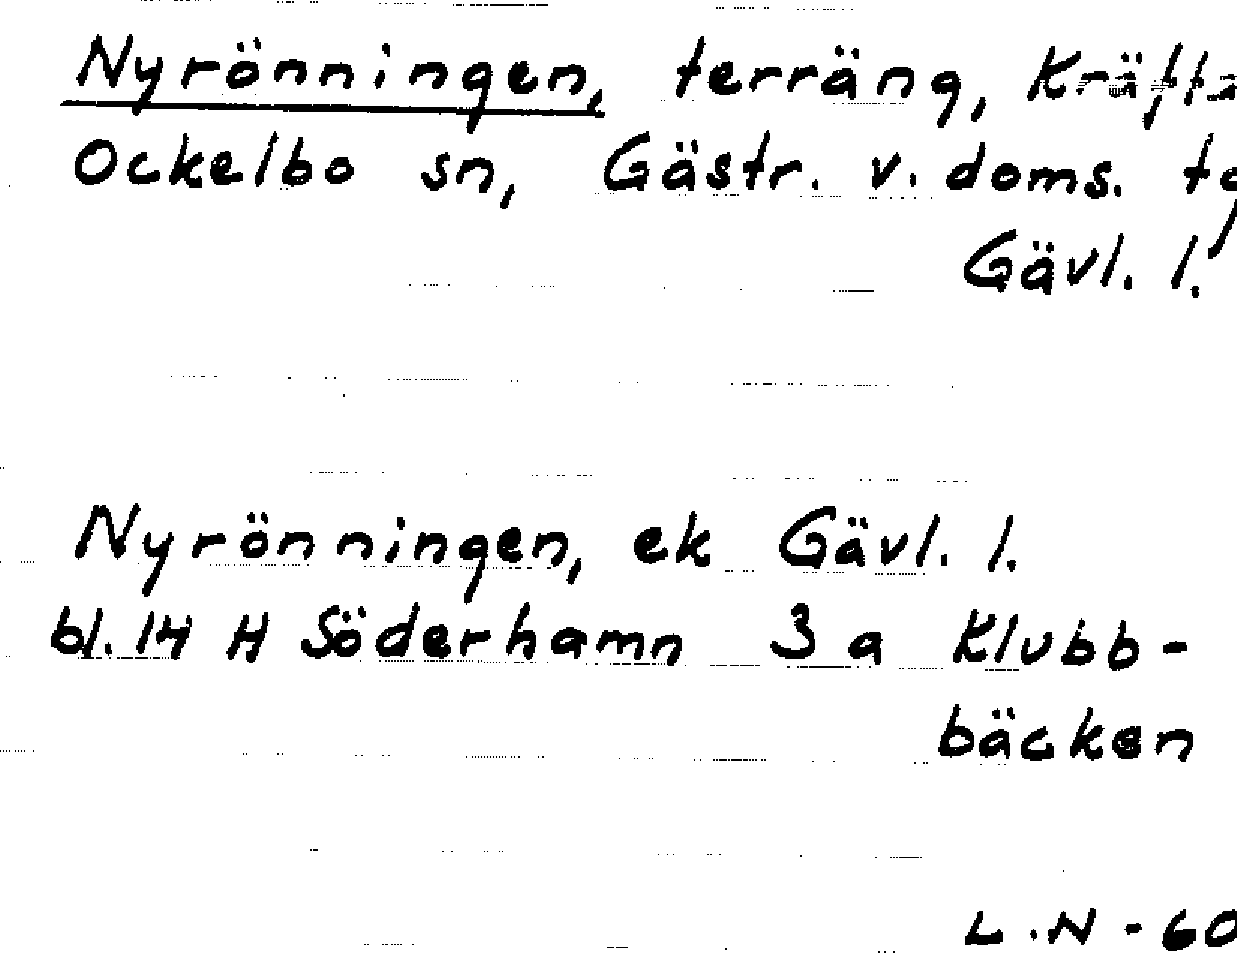 Nyrönningen, terräng, Kräfta
Ockelbo sn, Gästr. v. doms. tg
Gävl. l.
Nyrönningen, ek Gävl. l.
bl. 14 H Söderhamn 3 a Klubb-
bäcken
L.N - 60